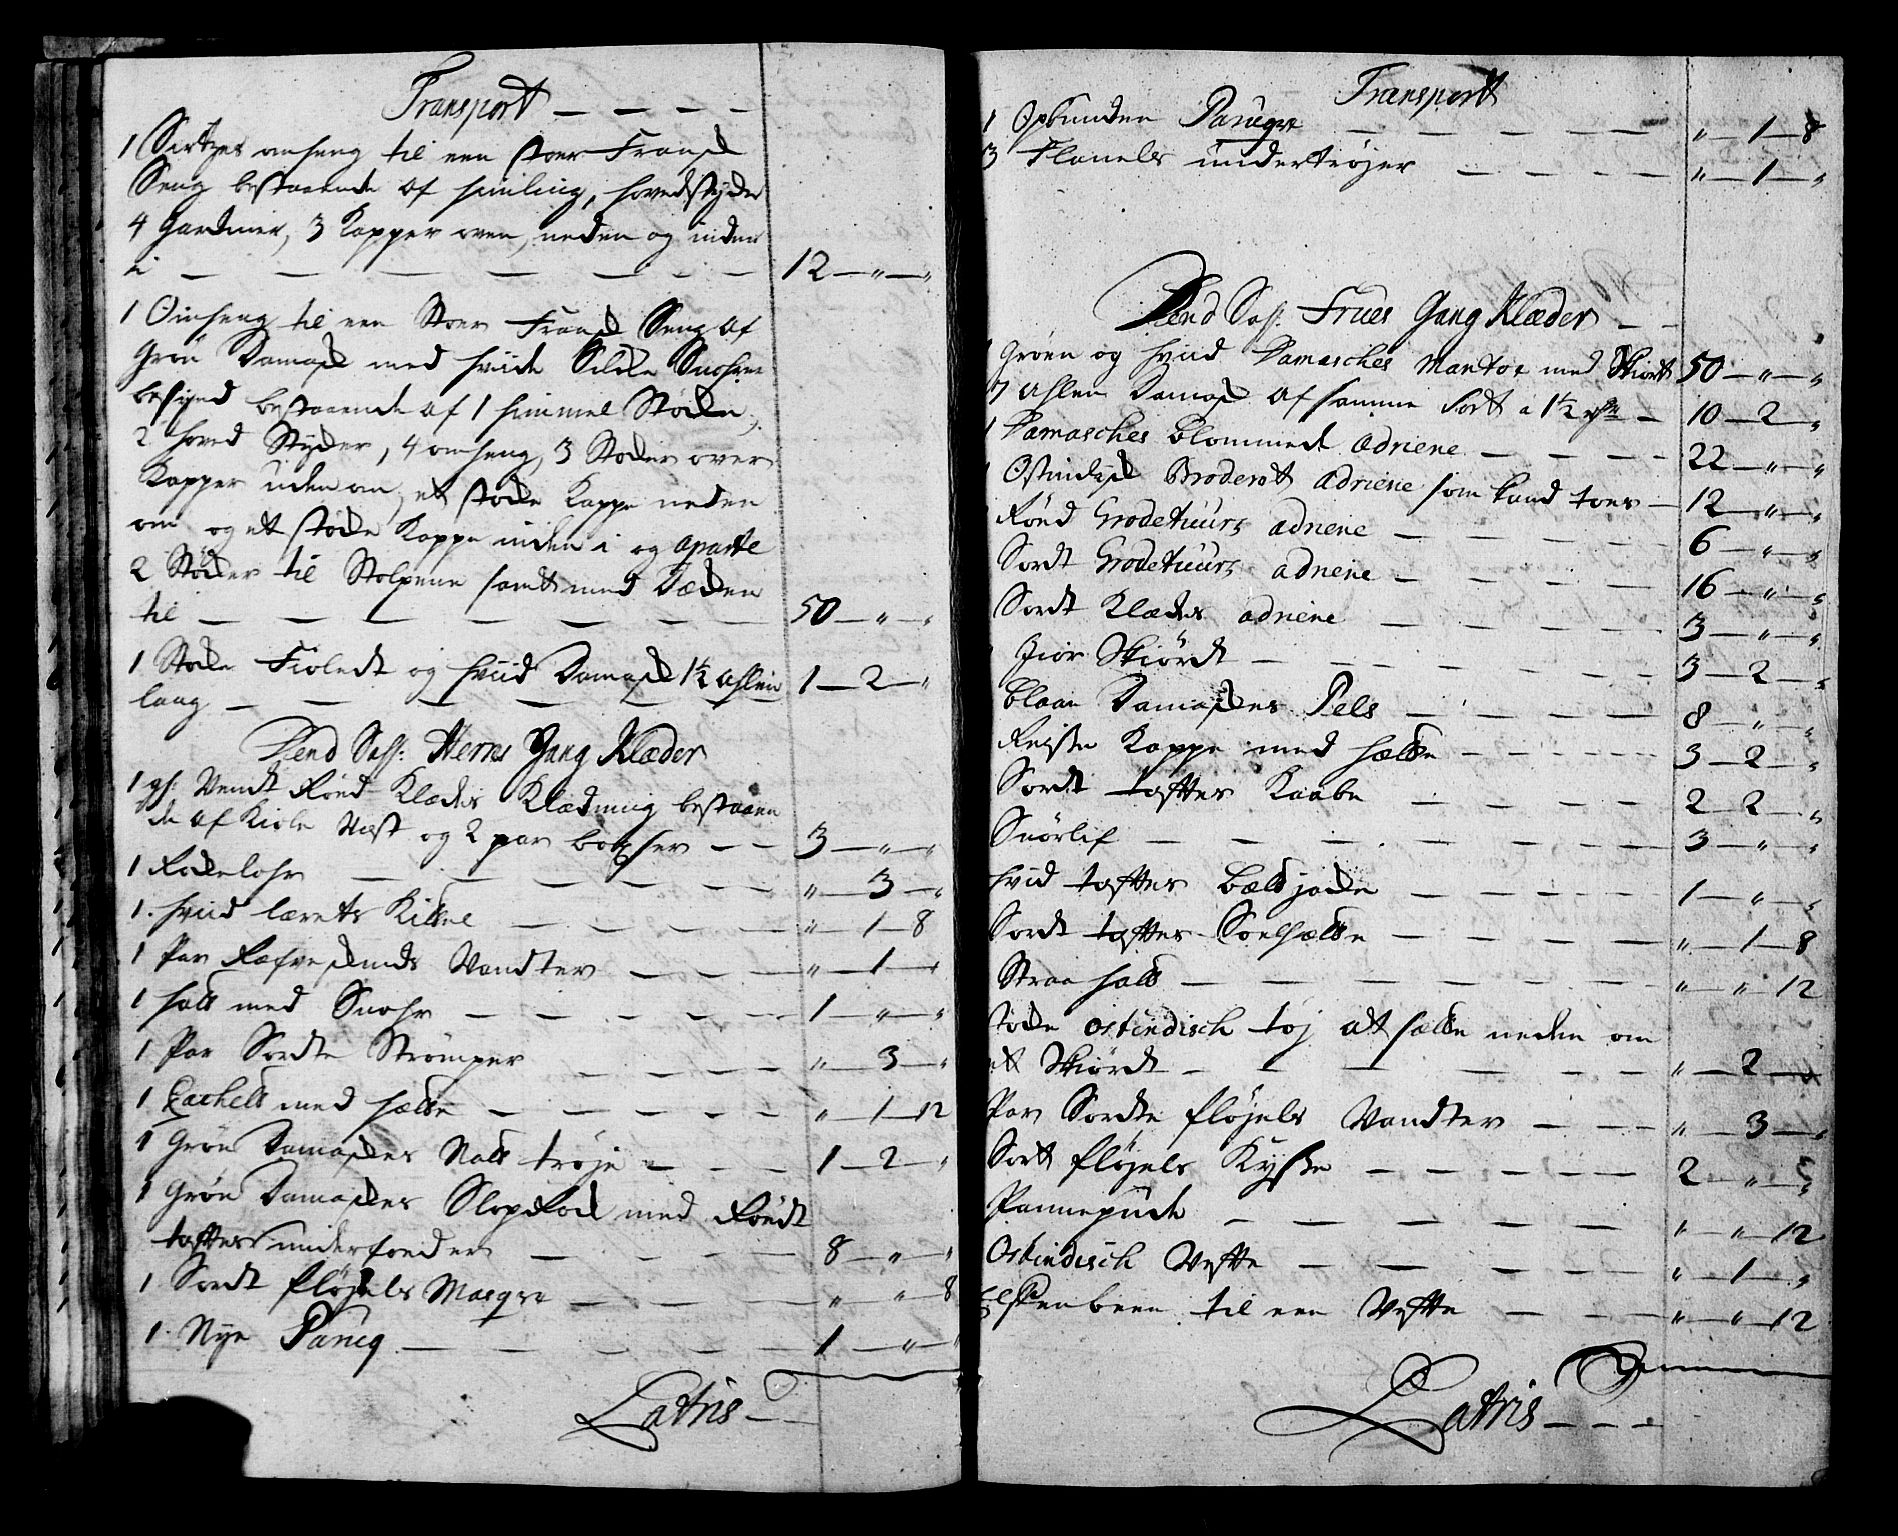 Transport — — — —
1 Sirtzes omheng til een stoer Fransk
Seng bestaaende af himling, hovedstyder
4 Gardiner, 3 Kapper oven, neden og inden
i — — — — — — — 12 — " — "
1 Omheng til een Stoer Fransk Seng af
Grøn Damask med hviide Silke Snohre
besyed bestaaende af 1 himmel Støcke,
2 hoved Styder, 4 omheng, 3 Støcker over
Kapper uden om, et støcke Kappe neden
om og ett støcke Kappe inden i og aparte
2 Støcker til Stolpene samt med Decken
til — — — — — — — 50 — " — "
1 Støcke Fioledt og hviid Damask 1½ Ahlen
lang — — — — — — 1 — 2 — "
Vend Sahl: Herres Gang Klæder
1 gl: Vendt Røed Klædes Klædning bestaaen
de af Kiole Vest og 2 par boxser — — 3 — " — "
1 Rockelohr — — — — — " — 3 — "
1. hviid lærets Kittel — — — — " — 1 — 8
1 Par Ræfveskinds Vandter — — — " — 1 — "
1 hatt med Snohr — — — — — 1 — " — "
1 Par Sordte Strømper — — — — " — 3 — "
1 Cachett med hætte — — — — " — 1 — 12
1 Grøn Damaskes Natt trøje — — — 1 — 2 — "
1 Grøn Damaskes Slopprock med Røedt
taftes underfoeder — — — — 8 — " — "
1 Sordt fløjels — — — " — " — 8
1. Nye Parucq — — — — — 1 — " — "
Latris — —
Transport
1 Opbunden Parucqve — — — — — " — 1 — 8
3 Flanels undertrøjer — — — — " — 1 — "
Vend Sahl: Frues Gang Klæder — —
1 Grøen og hviid Damasches Mantoe med Skiørt 50 — " — "
7 Ahlen Damask af samme Sort a 1½ — 10 — 2 — "
1 Damasches blommede Adriene — — — — 22 — " — "
1 Ostindisk Broderet Adriene som kand toes — 12 — " — "
Røed Grodetuurs adriene — — — — 6 — " — "
Sordt Grodetuurs adriene — — — — 16 — " — "
Sordt Klædes adriene — — — — 3 — " — "
Skiørdt — — — — — — 3 — 2 — "
blaae Damaskes Pels — — — — — 8 — " — "
Rejse Kappe med hætte — — — — 3 — 2 — "
Sordt taftes Kaabe — — — — 2 — 2 — "
Snørlif — — — — — — 3 — " — "
hvid taftes — — — — 1 — " — "
Sordt taftes Soelhætte — — — — " — 1 — 8
Straa hatt — — — — — — " — " — 12
støcke ostindisch tøj att sætte neden om
et Skiørdt — — — — — — " — 2 — "
Par Sordte fløjels Vandter — — — " — 3 — "
Sort fløjels Kyse — — — — 2 — " — "
Pannepude — — — — — " — " — 12
Ostindisch Vefte — — — — — " — 1 — "
Elfenbeen til een Vefte — — — " — " — 12
Latris — — — —